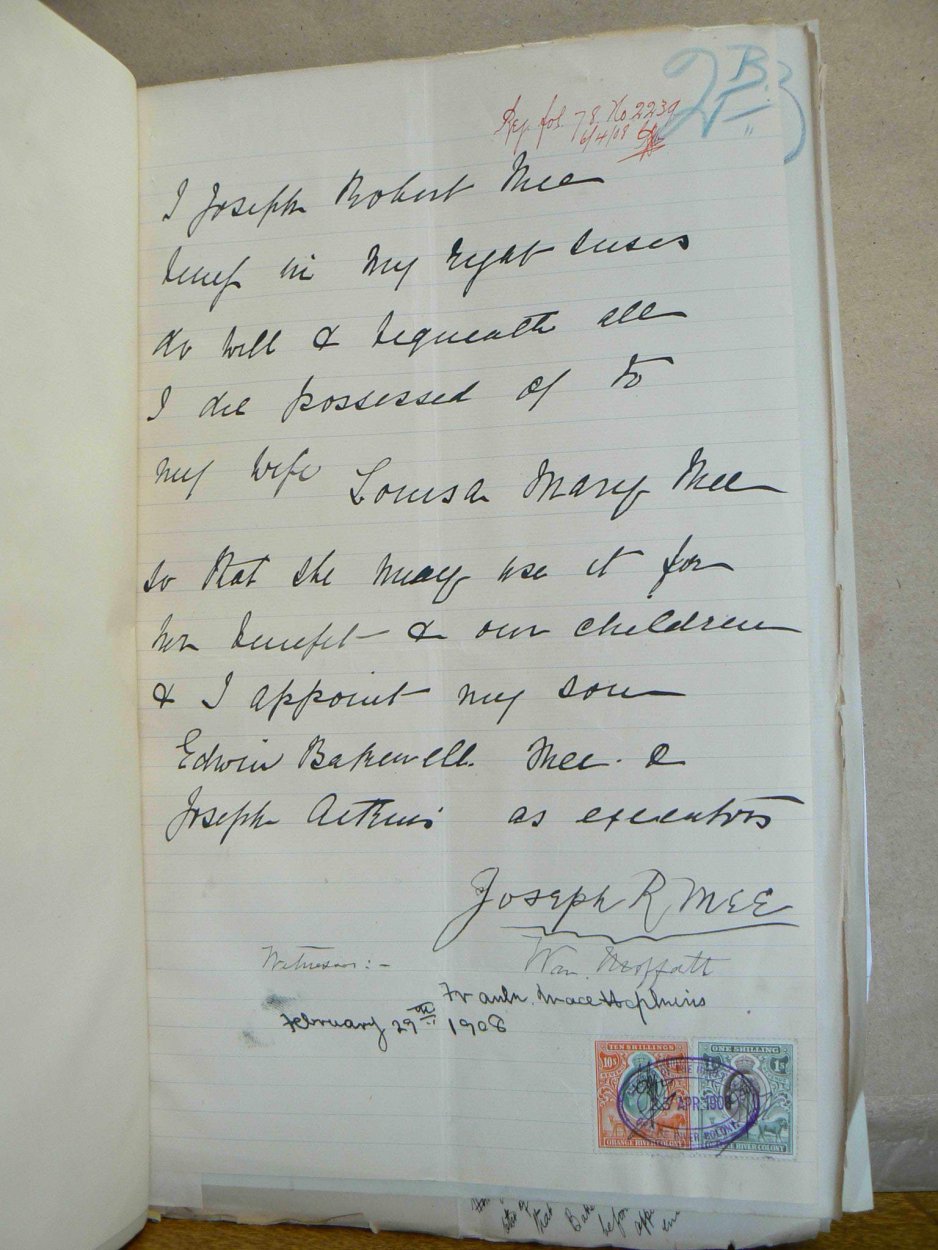 2 B. 3
Reg fol. 78 No 2239
6/4/08
I Joseph Robert Mee
being in my right senses
do will & bequeath all
I die possessed of to
my wife Louisa Mary Mee
so that she may use it for
her benefit & our children
& I appoint my son
Edwin Bakewell Mee &
Joseph Aitkins as executors
Joseph R Mee
Witnesses:- Wm. Moffatt
Frank. Mace Hopkins
February 29th 1908
TEN SHILLINGS
ONE SHILLING
10s
1s
APR 1908
ORANGE RIVER COLONY
ORANGE RIVER COLONY